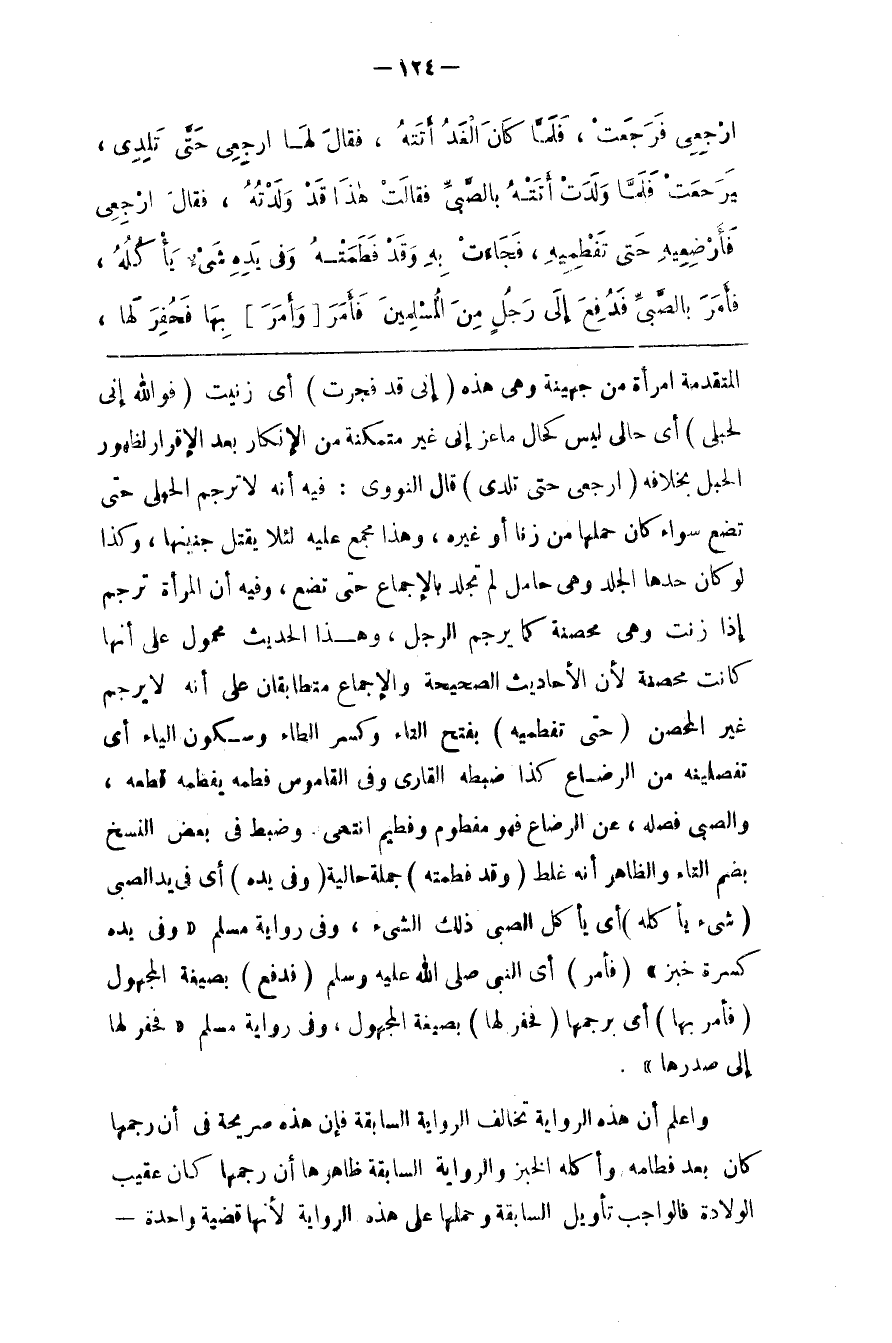 — ١٢٤ —
ارْجِعِى فَرَجَعَتْ ، فَلَمَّا كَانَ الْغَدُ أَتَتهُ ، فقالَ لَهَـا ارجِعِى حَتَّى تَلِدِى ،
فَرَجَعَتْ فَلَمَّا وَلَدَتْ أَتَتْـهُ بالصَّبِىِّ فقالَتْ هٰذَا قَدْ وَلَدْتُهُ ، فقالَ ارْجِعِى
فَأَرْضِعِيهِ حَتى تَفْطِمِيهِ ، فَجَاءَتْ بِهِ وَقَدْ فَطَمَتْـهُ وَفى يَدِهِ شَىْءٌ يَأْكُلُهُ ،
فأَمَرَ بالصَّبىِّ فَدُفِعَ إلَى رَجُلٍ مِنَ الْمُسْلِمِينَ فَأَمَرَ [ وَأَمَرَ ] بِهَا فَحُفِرَ لَها ،
المتقدمة امرأة من جهينة وهى هذه ( إنى قد فجرت ) أى زنيت ( فوالله إنى
لحبلى ) أى حالى ليس كحال ماعز إنى غير متمكنة من الإنكار بعد الإقرار لظهور
الحبل بخلافه ( ارجعى حتى تلدى ) قال النووى : فيه أنه لاترجم الحبلى حتى
تضع سواء كان حملها من زنا أو غيره ، وهذا مجمع عليه لئلا يقتل جنينها ، وكذا
لو كان حدها الجلد وهى حامل لم تجلد بالإجماع حتى تضع ، وفيه أن المرأة ترجم
إذا زنت وهى محصنة كما يرجم الرجل ، وهـذا الحديث محمول على أنها
كانت محصنة لأن الأحاديث الصحيحة والإجماع متطابقان على أنه لايرجم
غير المحصن ( حتى تفطميه ) بفتح التاء وكسر الطاء وسـكون الياء أى
تفصلينه من الرضـاع كذا ضبطه القارى وفى القاموس فطمه يفطمه قطعه ،
والصبى فصله ، عن الرضاع فهو مفطوم وفطيم انتهى . وضبط فى بعض النسخ
بضم التاء والظاهر أنه غلط ( وقد فطمته ) جملة حالية ( وفى يده ) أى فى يد الصبى
( شىء يأكله ) أى يأكل الصبى ذلك الشىء ، وفى رواية مسلم « وفى يده
كسرة خبز » ( فأمر ) أى النبى صلى الله عليه وسلم ( فدفع ) بصيغة المجهول
( فأمر بها ) أى برجمها ( فحفر لها ) بصيغة المجهول ، وفى رواية مسلم « فحفر لها
إلى صدرها » .
واعلم أن هذه الرواية تخالف الرواية السابقة فإن هذه صريحة فى أن رجمها
كان بعد فطامه وأكله الخبز والرواية السابقة ظاهرها أن رجمها كان عقيب
الولادة فالواجب تأويل السابقة وحملها على هذه الرواية لأنها قضية واحدة —